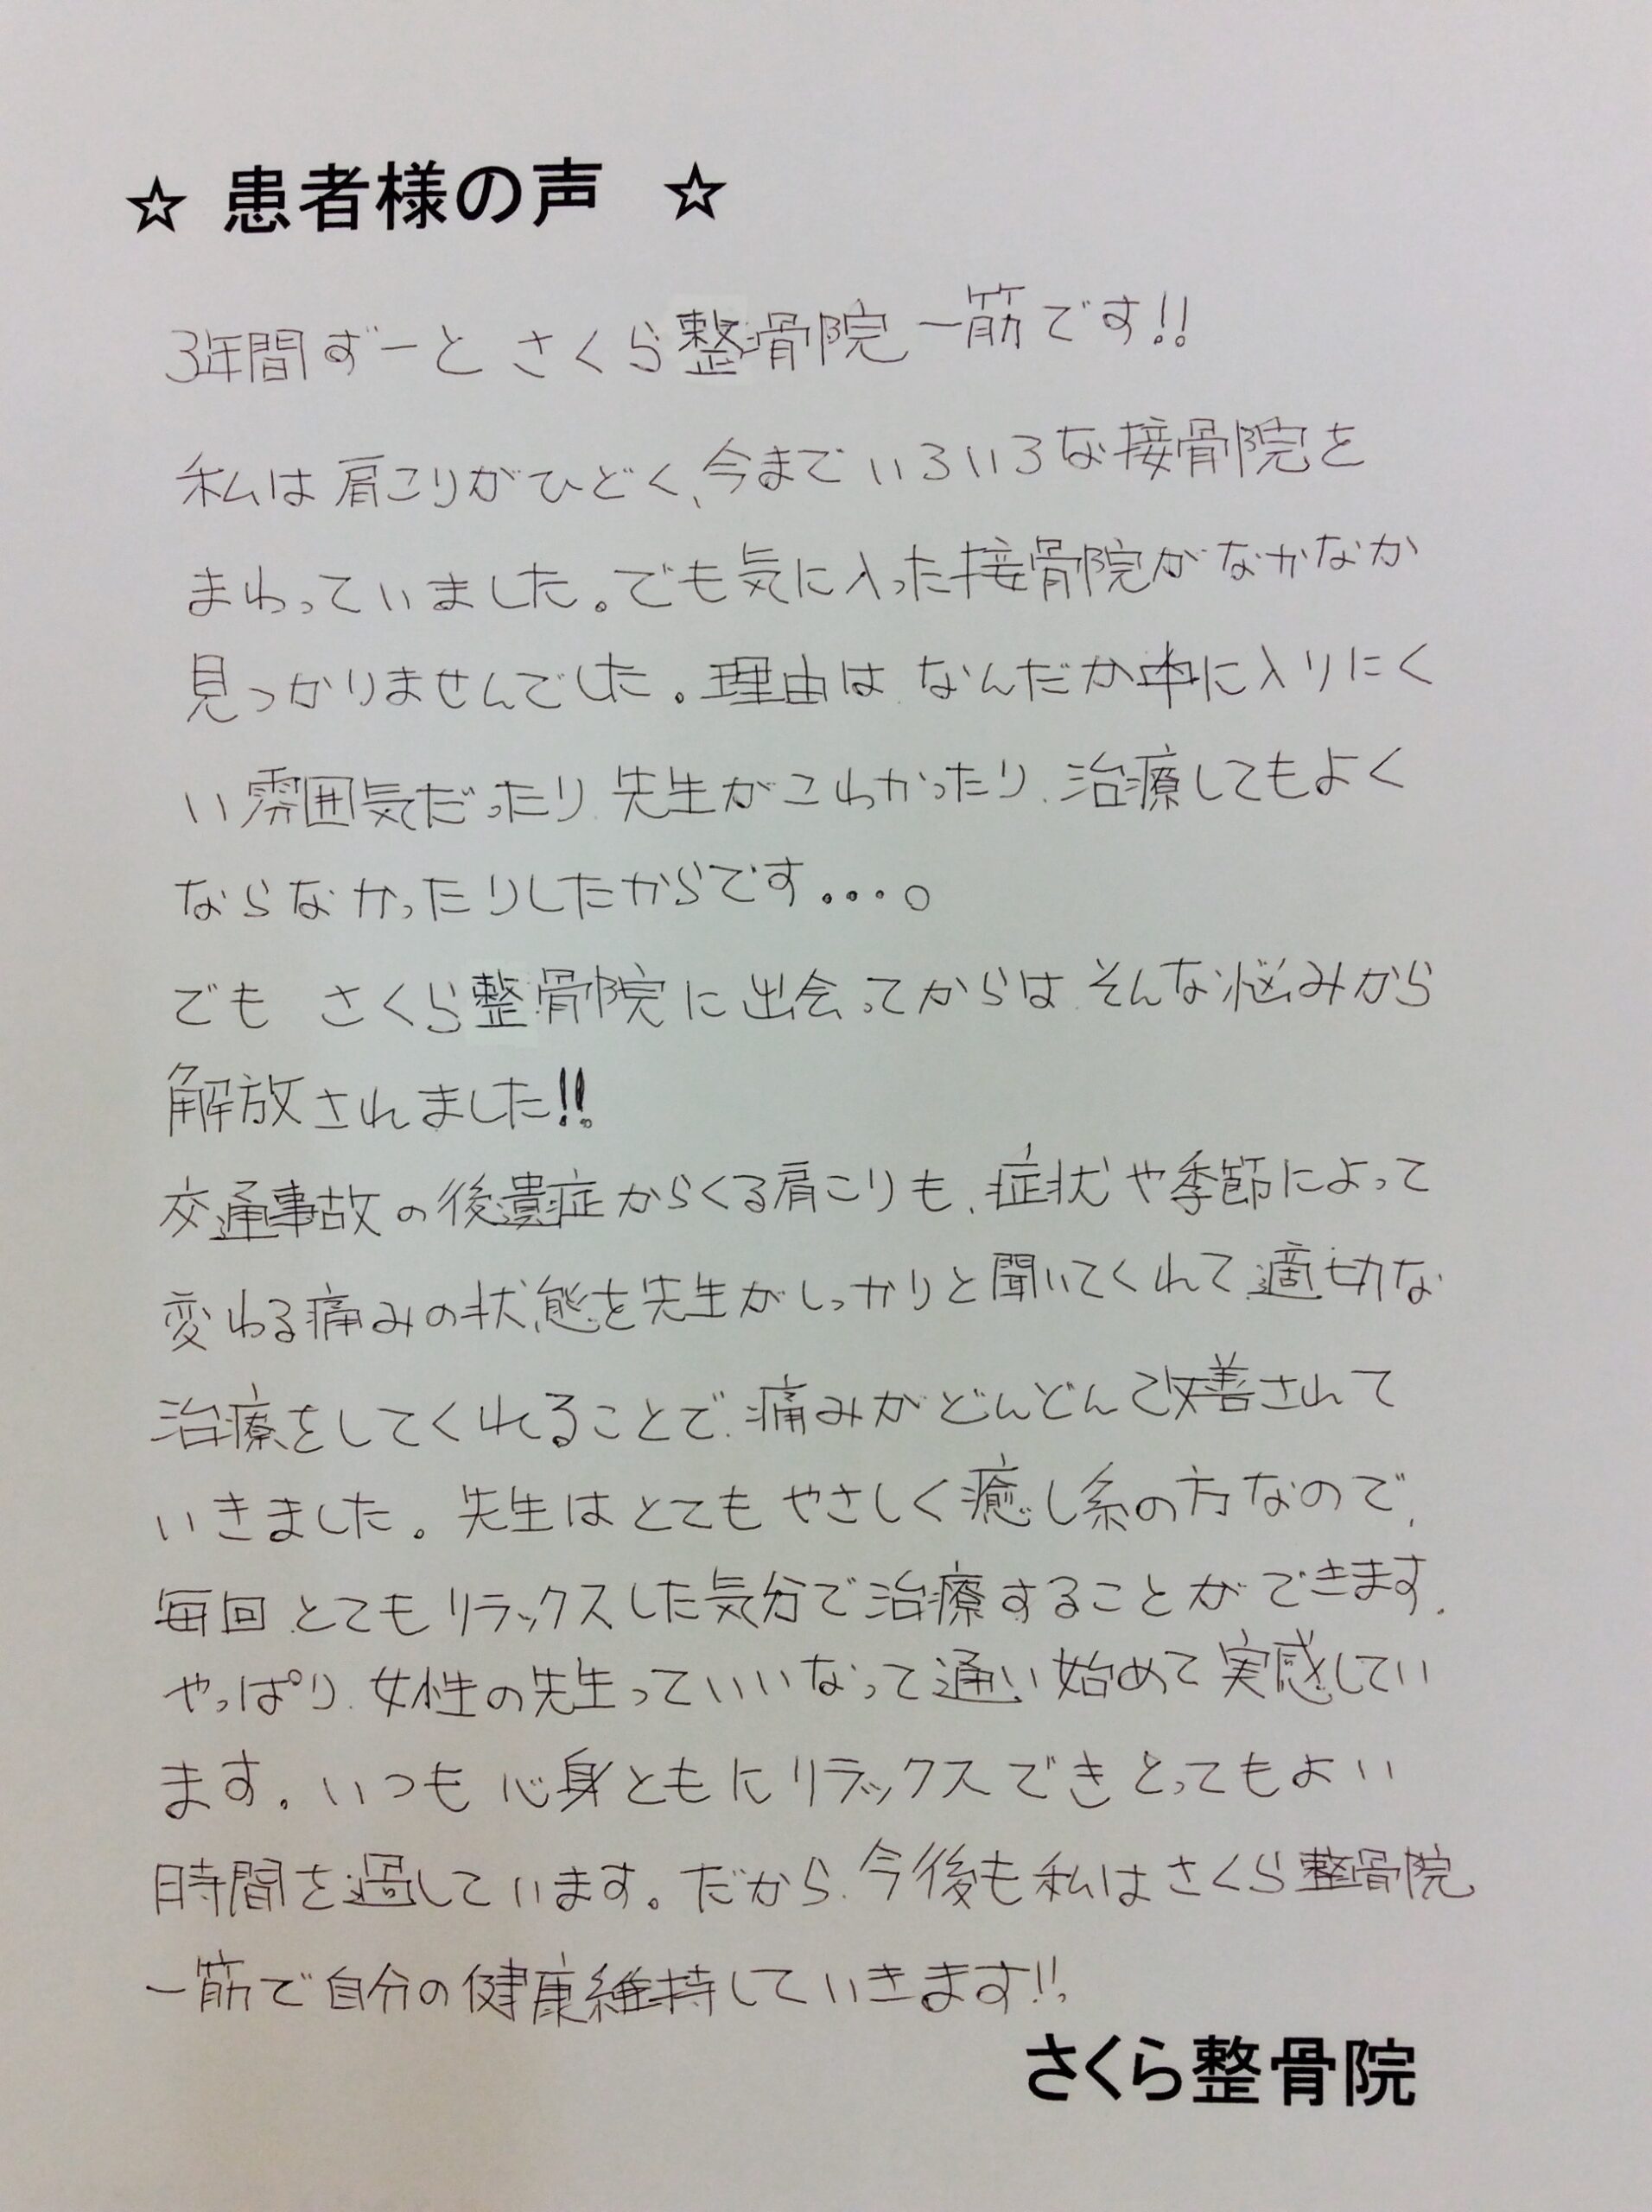 ☆ 患者様の声 ☆
3年間ずーと さくら整骨院一筋です!!
私は肩こりがひどく、今までいろいろな接骨院を
まわっていました。でも気に入った接骨院がなかなか
見つかりませんでした。理由は なんだか中に入りにく
い雰囲気だったり、先生がこわかったり、治療してもよく
ならなかったりしたからです...。
でも さくら整骨院に出会ってからは そんな悩みから
解放されました!!
交通事故の後遺症からくる肩こりも、症状や季節によって
変わる痛みの状態を先生がしっかりと聞いてくれて適切な
治療をしてくれることで、痛みがどんどん改善されて
いきました。先生はとてもやさしく癒し系の方なので、
毎回とてもリラックスした気分で治療することができます。
やっぱり、女性の先生っていいなって通い始めて実感してい
ます。いつも心身ともにリラックスでき とってもよい
時間を過しています。だから、今後も私はさくら整骨院
一筋で自分の健康維持していきます!!
さくら整骨院